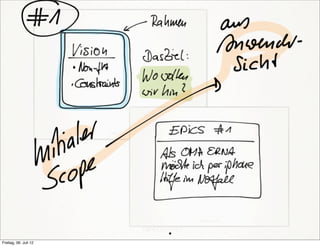 #1
Rahmen
aus
Anwender-
Sicht
Vision
• Non-fkt
• Constraints
Das Ziel:
Wo wollen
wir hin?
initialer
Scope
EPICS #1
Als OMA ERNA
möchte ich per iphone
Hilfe im Notfall
Freitag, 06. Juli 12